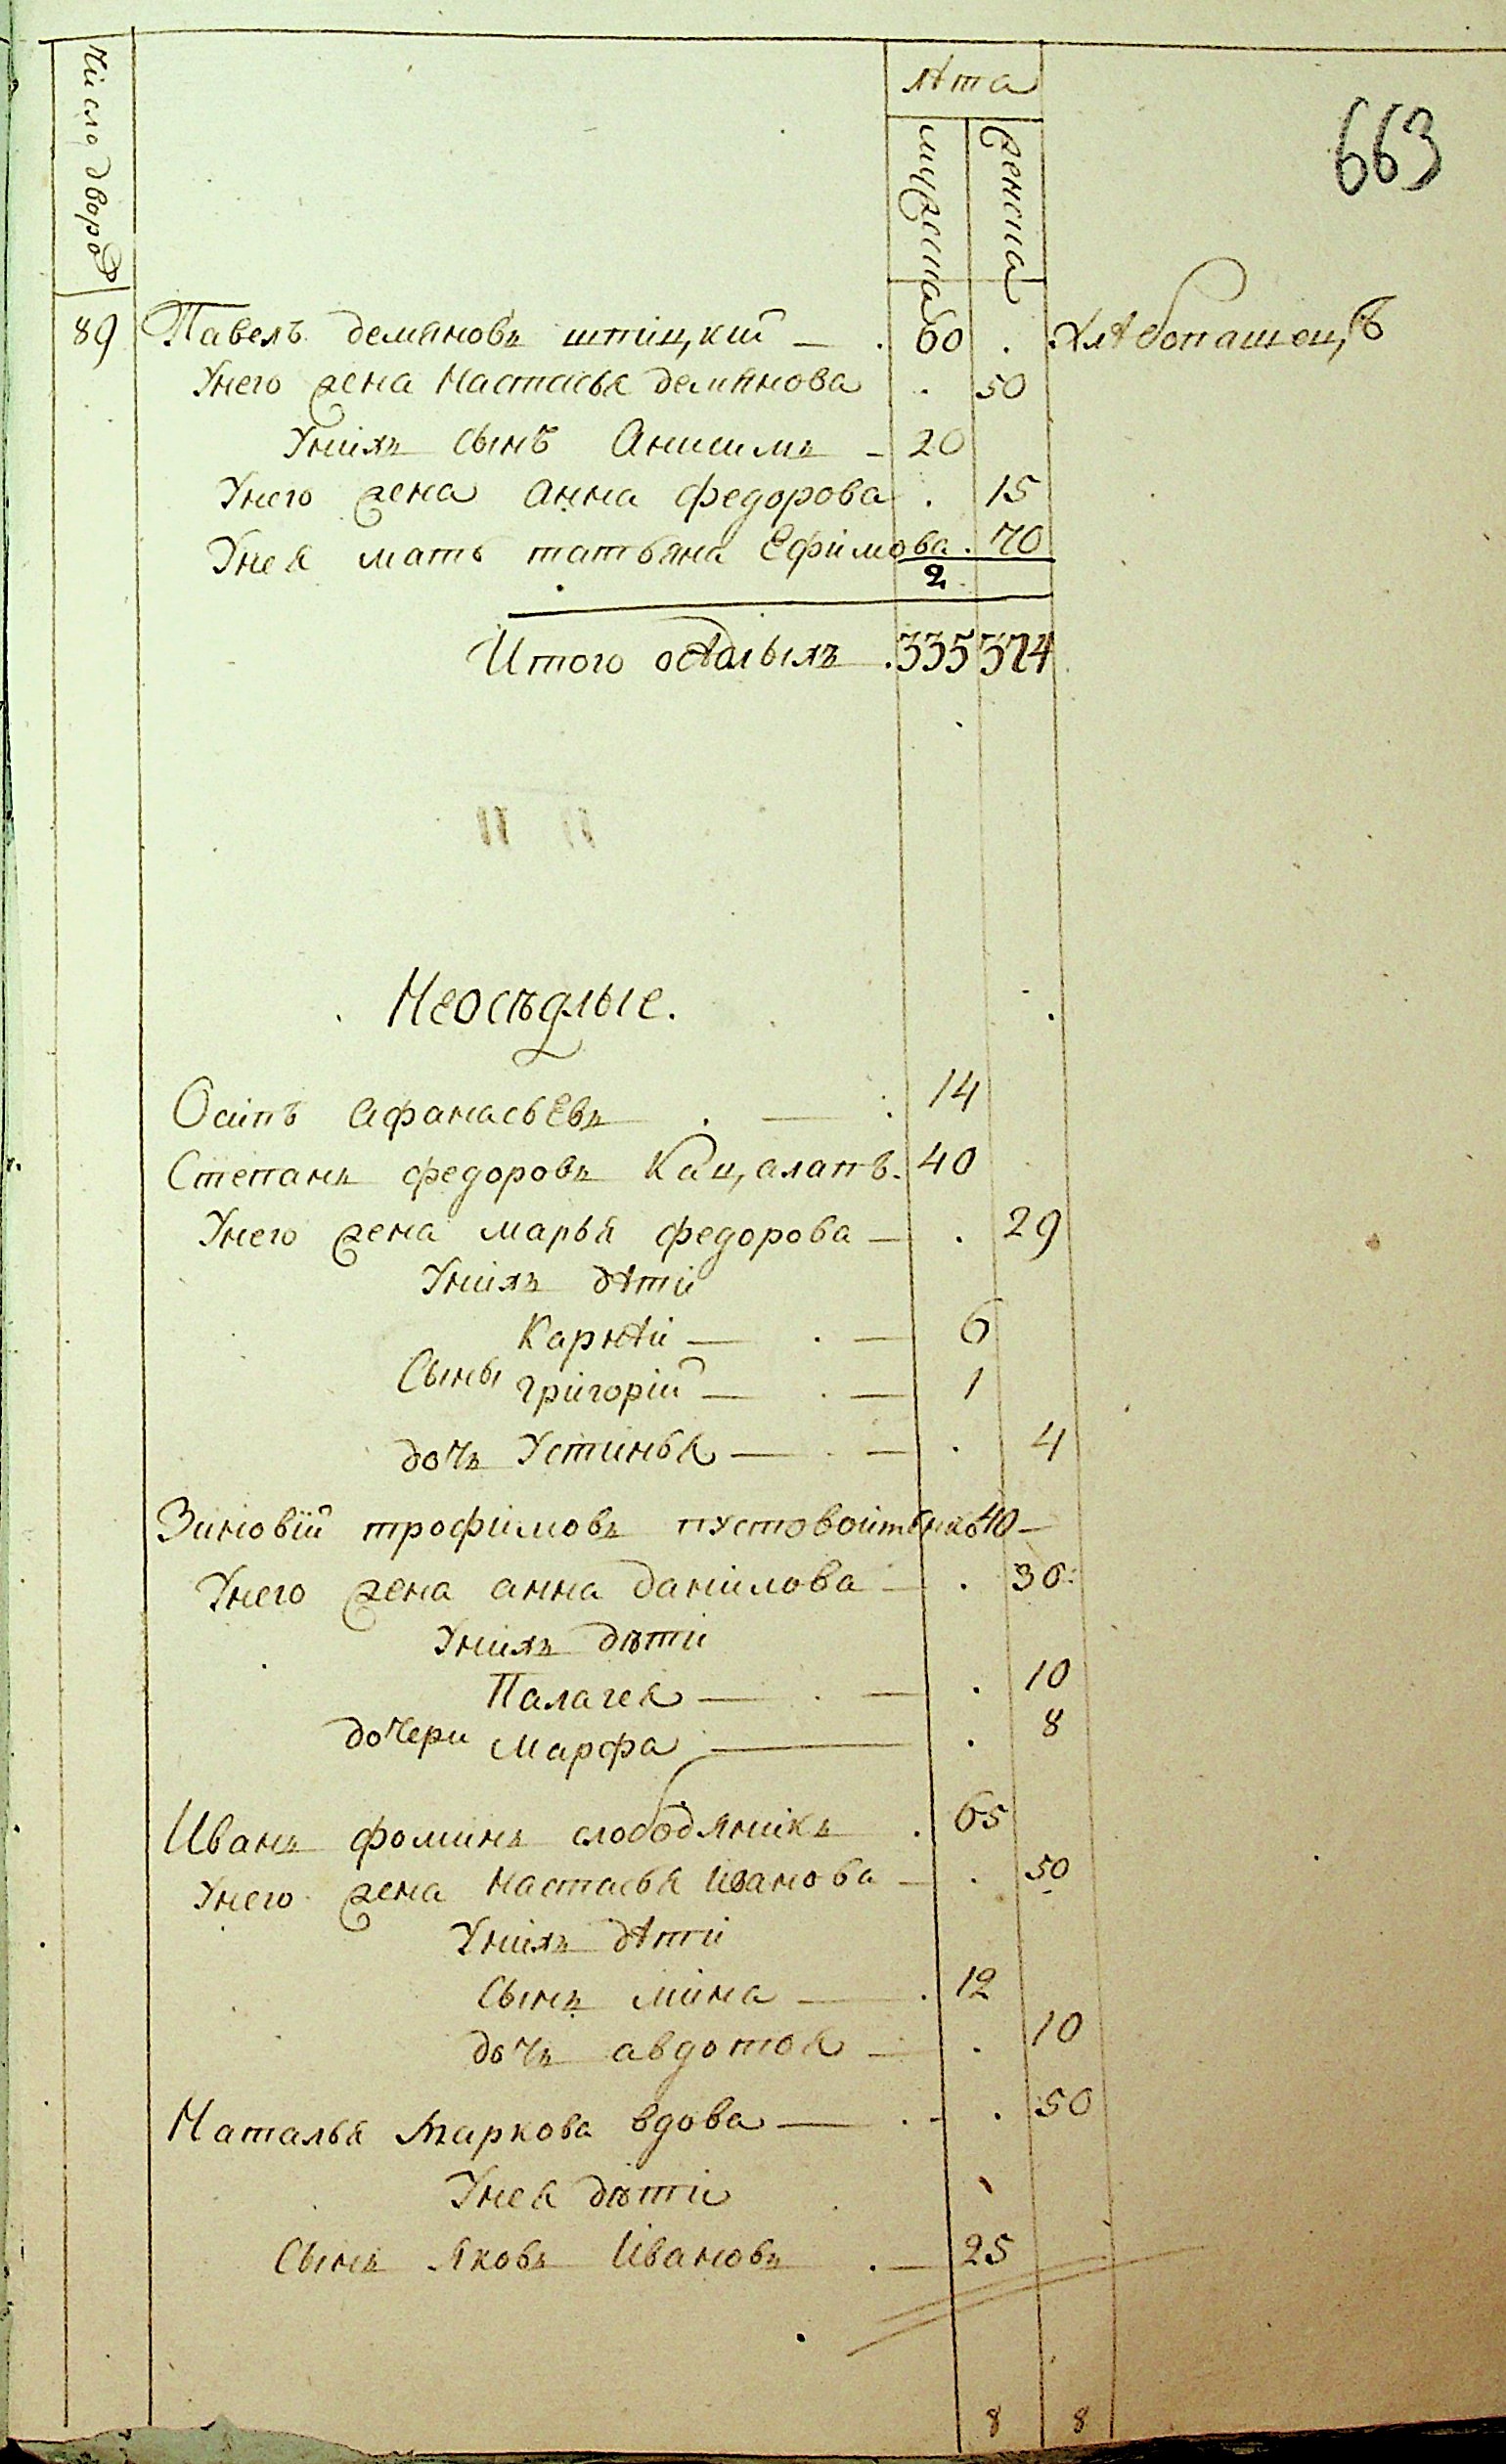 663
Число дворов
Лѣта
мужеска
женска
89 Павелъ демяновъ штицкий — . 60 . Хлѣбопашецъ
Унего жена Настасья демянова . 50
Уних сынъ Анисимъ - 20
Унего жена Анна федорова . 15
Унея мать татьяна Ефимова . 70
2
Итого осѣдлыхъ . 335 374
Неосѣдлые.
Осипъ Афанасьевъ . — 14
Степанъ федоровъ Кацалапъ . 40
Унего жена марья федорова — . 29
Унихъ дѣти
Карнѣй — . — 6
Сыны григорий — . — 1
дочь Устинья — . — . 4
Зиновій трофимовъ пустовойтенко 40 —
Унего жена анна данилова — . 30
Унихъ дѣти
Палагея — . — . 10
дочери Марфа — . 8
Иванъ фоминъ слободяникъ . 65
Унего жена Настасья Иванова — . 50
Унихъ дѣти
Сынъ мина — . 12
дочь авдотья — . 10
Наталья Маркова вдова — . - . 50
Унея дѣти
Сынъ Яковъ Ивановъ . — 25
8 8